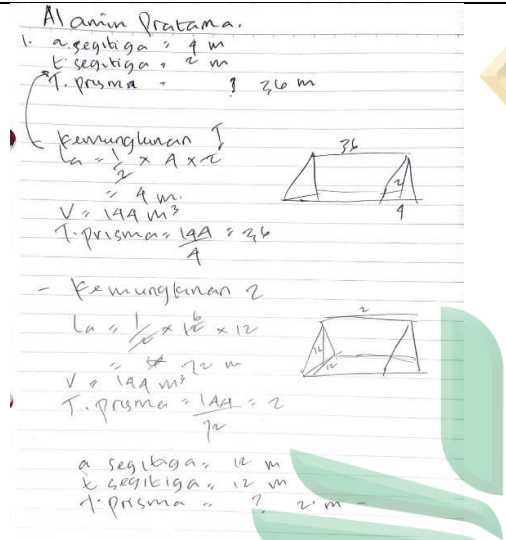 Alamin Pratama.
1. a. segitiga = 4 m
t. segitiga = 2 m
T. prisma = ? 36 m
Kemungkinan I
La = 1/2 x 4 x 2
= 4 m.
V = 144 m³
T. prisma = 144/4 = 36
36
2
4
- Kemungkinan 2
La = 1/2 x 12 6 x 12
= 72 m
V = 144 m³
T. prisma = 144/72 = 2
2
12
12
a segitiga = 12 m
t segitiga = 12 m
t. prisma = ? 2 m